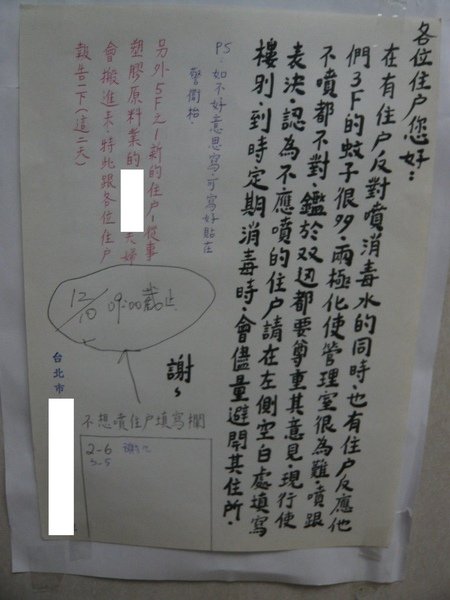 各位住戶您好：
在有住戶反對噴消毒水的同時，也有住戶反應他
們3F的蚊子很多，兩極化使管理室很為難，噴跟
不噴都不對，鑑於双边都要尊重其意見，現行使
表決，認為不應噴的住戶請在左側空白處填寫
樓別，到時定期消毒時，會儘量避開其住所．
PS．如不好意思寫，可寫好貼在
警衛枱．
另外5F之1新的住戶，從事
塑膠原料業的夫婦
會搬進來，特此跟各位住戶
報告一下(這二天)
謝
12/10 09:00截止
台北市
不想噴住戶填寫欄
2-6
3-5